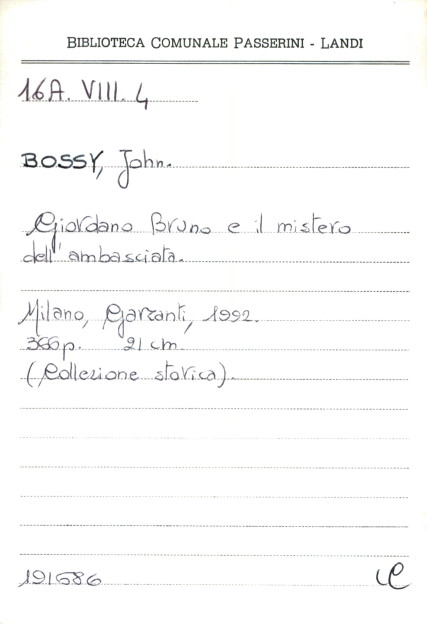 BIBLIOTECA COMUNALE PASSERINI - LANDI
16A. VIII. 4
BOSSY, John.
Giordano Bruno e il mistero
dell'ambasciata.
Milano, Garzanti, 1992.
366p. 21 cm.
(Collezione storica).
191686